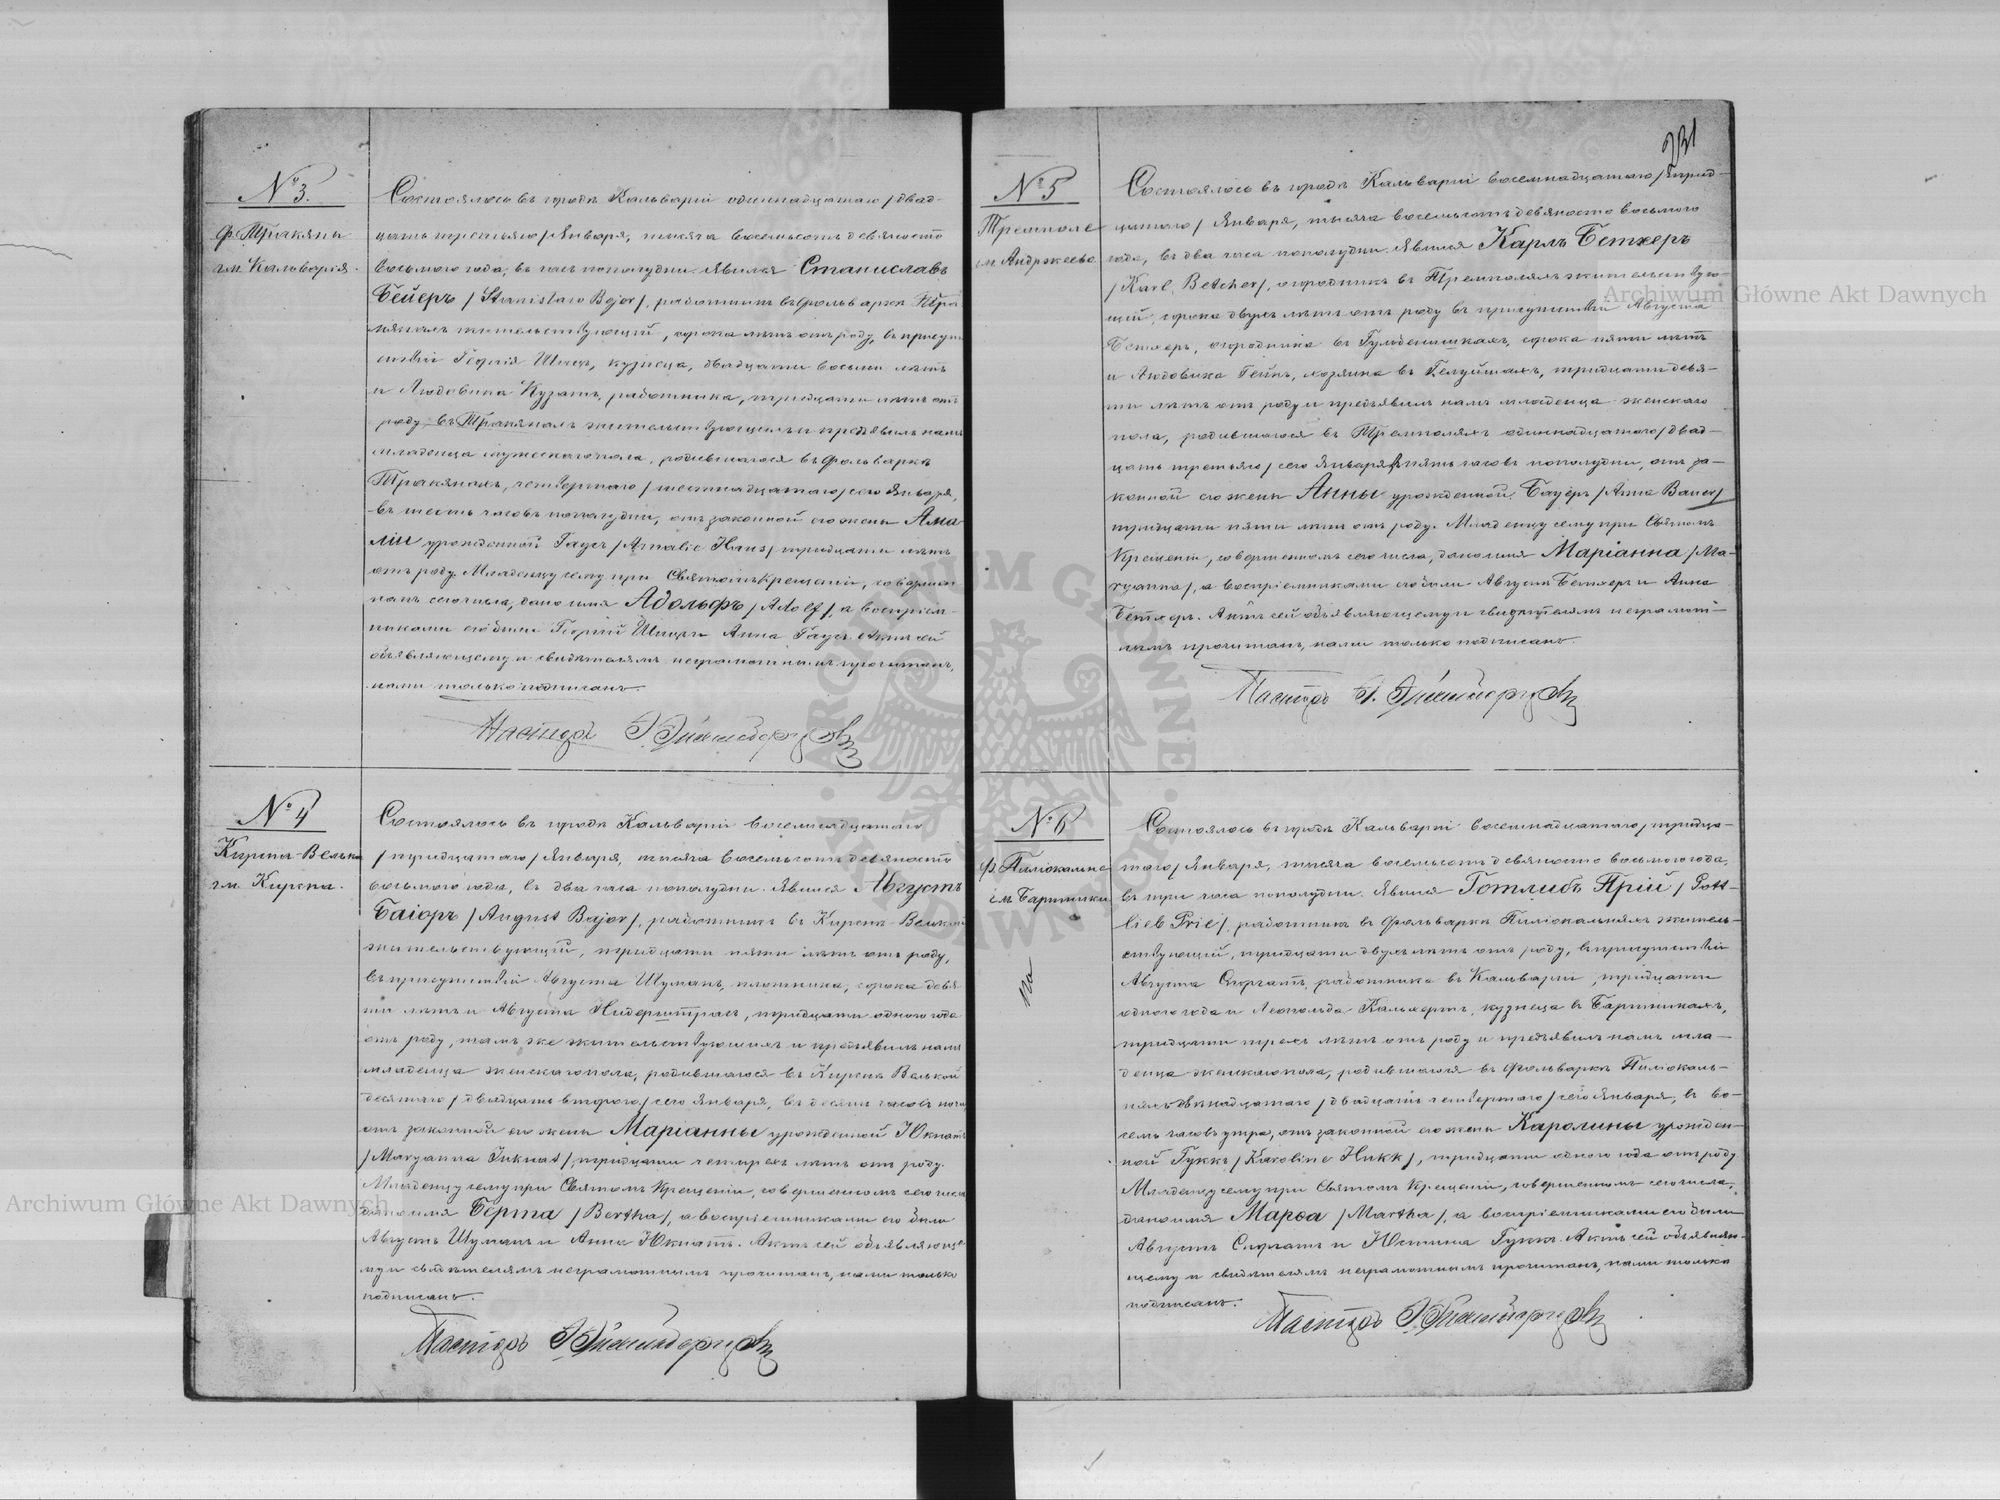 № 3.
ф. Тракяны
гм. Кальварія.
Состоялось въ городѣ Кальваріи одиннадцатаго /двад-
цать третьяго/ Января, тысяча восемьсотъ девяносто
восьмого года, въ часъ пополудни. Явился Станиславъ
Бейеръ /Stanislaw Bejer/, работникъ въ фольваркѣ Тра-
кянахъ жительствующій, сорока лѣтъ отъ роду, въ присут-
ствіи Георгія Шмидъ, кузнеца, двадцати восьми лѣтъ
и Людовика Кузатъ, работника, тридцати лѣтъ отъ
роду, въ Тракянахъ жительствующихъ и предъявилъ намъ
младенца мужескаго пола, родившагося въ фольваркѣ
Тракянахъ, четвертаго /шестнадцатаго/ сего Января,
въ шесть часовъ пополудни, отъ законной его жены Ама-
ліи урожденной Гаусъ /Amalie Haus/ тридцати лѣтъ
отъ роду. Младенцу сему при Святомъ Крещеніи, совершен-
номъ сего числа, дано имя Адольфъ /Adolf/, а воспріем-
никами его были Георгій Шмидъ и Анна Гаусъ. Актъ сей
объявляющему и свидѣтелямъ неграмотнымъ прочитанъ,
нами только подписанъ.
Пасторъ
№ 4
Кирсна-Велька
гм. Кирсна.
Состоялось въ городѣ Кальваріи восемнадцатаго
/тридцатаго/ Января, тысяча восемьсотъ девяносто
восьмого года, въ два часа пополудни. Явился Августъ
Баіоръ /August Bajor/, работникъ въ Кирснѣ-Велькой
жительствующій, тридцати пяти лѣтъ отъ роду,
въ присутствіи Августа Шуманъ, плотника, сорока девя-
ти лѣтъ и Августа Нидерштрасъ, тридцати одного года
отъ роду, тамъ же жительствующихъ и предъявилъ намъ
младенца женскаго пола, родившагося въ Кирснѣ Велькой
десятаго /двадцать второго/ сего Января, въ десять часовъ ночи
отъ законной его жены Маріанны урожденной Юкнатъ
/Maryanna Juknat/, тридцати четырехъ лѣтъ отъ роду.
Младенцу сему при Святомъ Крещеніи, совершенномъ сего числа
дано имя Берта /Bertha/, а воспріемниками его были
Августъ Шуманъ и Анна Юкнатъ. Актъ сей объявляюще-
му и свидѣтелямъ неграмотнымъ прочитанъ, нами только
подписанъ.
Пасторъ
231
№ 5
Тремполе
гм. Андржеево
Состоялось въ городѣ Кальваріи восемнадцатаго /трид-
цатаго/ Января, тысяча восемьсотъ девяносто восьмого
года, въ два часа пополудни. Явился Карлъ Бетхеръ
/Karl Betcher/, огородникъ въ Тремполяхъ жительствую-
щій, сорока двухъ лѣтъ отъ роду въ присутствіи Августа
Бетхеръ, огородника въ Гульденишкахъ, сорока пяти лѣтъ
и Людовика Гейнъ, хозяина въ Гелуйшахъ, тридцати девя-
ти лѣтъ отъ роду и предъявилъ намъ младенца женскаго
пола, родившагося въ Тремполяхъ одиннадцатаго /двад-
цать третьяго/ сего Января въ пять часовъ пополудни, отъ за-
конной его жены Анны урожденной Бауеръ /Anna Bauer/
тридцати пяти лѣтъ отъ роду. Младенцу сему при Святомъ
Крещеніи, совершенномъ сего числа, дано имя Маріанна /Ma-
ryanna/, а воспріемниками его были Августъ Бетхеръ и Анна
Бетхеръ. Актъ сей объявляющему и свидѣтелямъ неграмот-
нымъ прочитанъ, нами только подписанъ.
Пасторъ
№ 6
ф. Пиліокальне
гм. Бартники
Состоялось въ городѣ Кальваріи восемнадцатаго /тридца-
таго/ Января, тысяча восемьсотъ девяносто восьмого года,
въ три часа пополудни. Явился Готлибъ Прій /Gott-
lieb Prie/, работникъ въ фольваркѣ Пиліокальняхъ житель-
ствующій, тридцати двухъ лѣтъ отъ роду, въ присутствіи
Августа Сюргатъ, работника въ Кальваріи, тридцати
одного года и Леопольда Кальхертъ, кузнеца въ Бартникахъ,
тридцати трехъ лѣтъ отъ роду и предъявилъ намъ мла-
денца женскаго пола, родившагося въ фольваркѣ Пиліокаль-
няхъ двѣнадцатаго /двадцать четвертаго/ сего Января, въ во-
семь часовъ утра, отъ законной его жены Каролины урожден-
ной Гуккъ /Karoline Hukk/, тридцати одного года отъ роду.
Младенцу сему при Святомъ Крещеніи, совершенномъ сего числа,
дано имя Марѳа /Martha/, а воспріемниками его были
Августъ Сюргатъ и Юстина Гуккъ. Актъ сей объявляю-
щему и свидѣтелямъ неграмотнымъ прочитанъ, нами только
подписанъ.
Пасторъ
Archiwum Główne Akt Dawnych
Archiwum Główne Akt Dawnych
ARCHIWUM GŁÓWNE AKT DAWNYCH